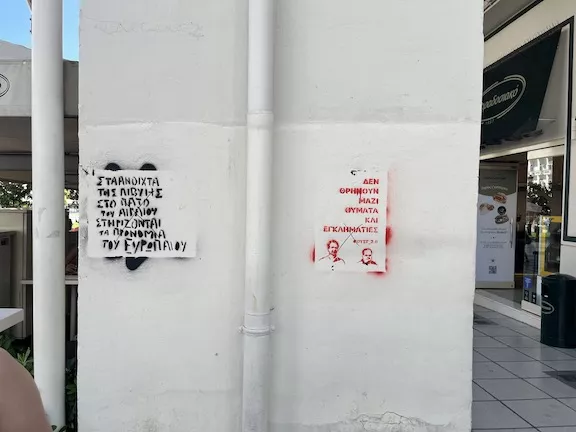 ΣΤΑ ΑΝΟΙΧΤΑ
ΤΗΣ ΛΙΒΥΗΣ
ΣΤΟ ΠΑΤΟ
ΤΟΥ ΑΙΓΑΙΟΥ
ΣΤΗΡΙΖΟΝΤΑΙ
ΤΑ ΠΡΟΝΟΜΙΑ
ΤΟΥ ΕΥΡΩΠΑΙΟΥ
ΔΕΝ
ΘΡΗΝΟΥΝ
ΜΑΖΙ
ΘΥΜΑΤΑ
ΚΑΙ
ΕΓΚΛΗΜΑΤΙΕΣ